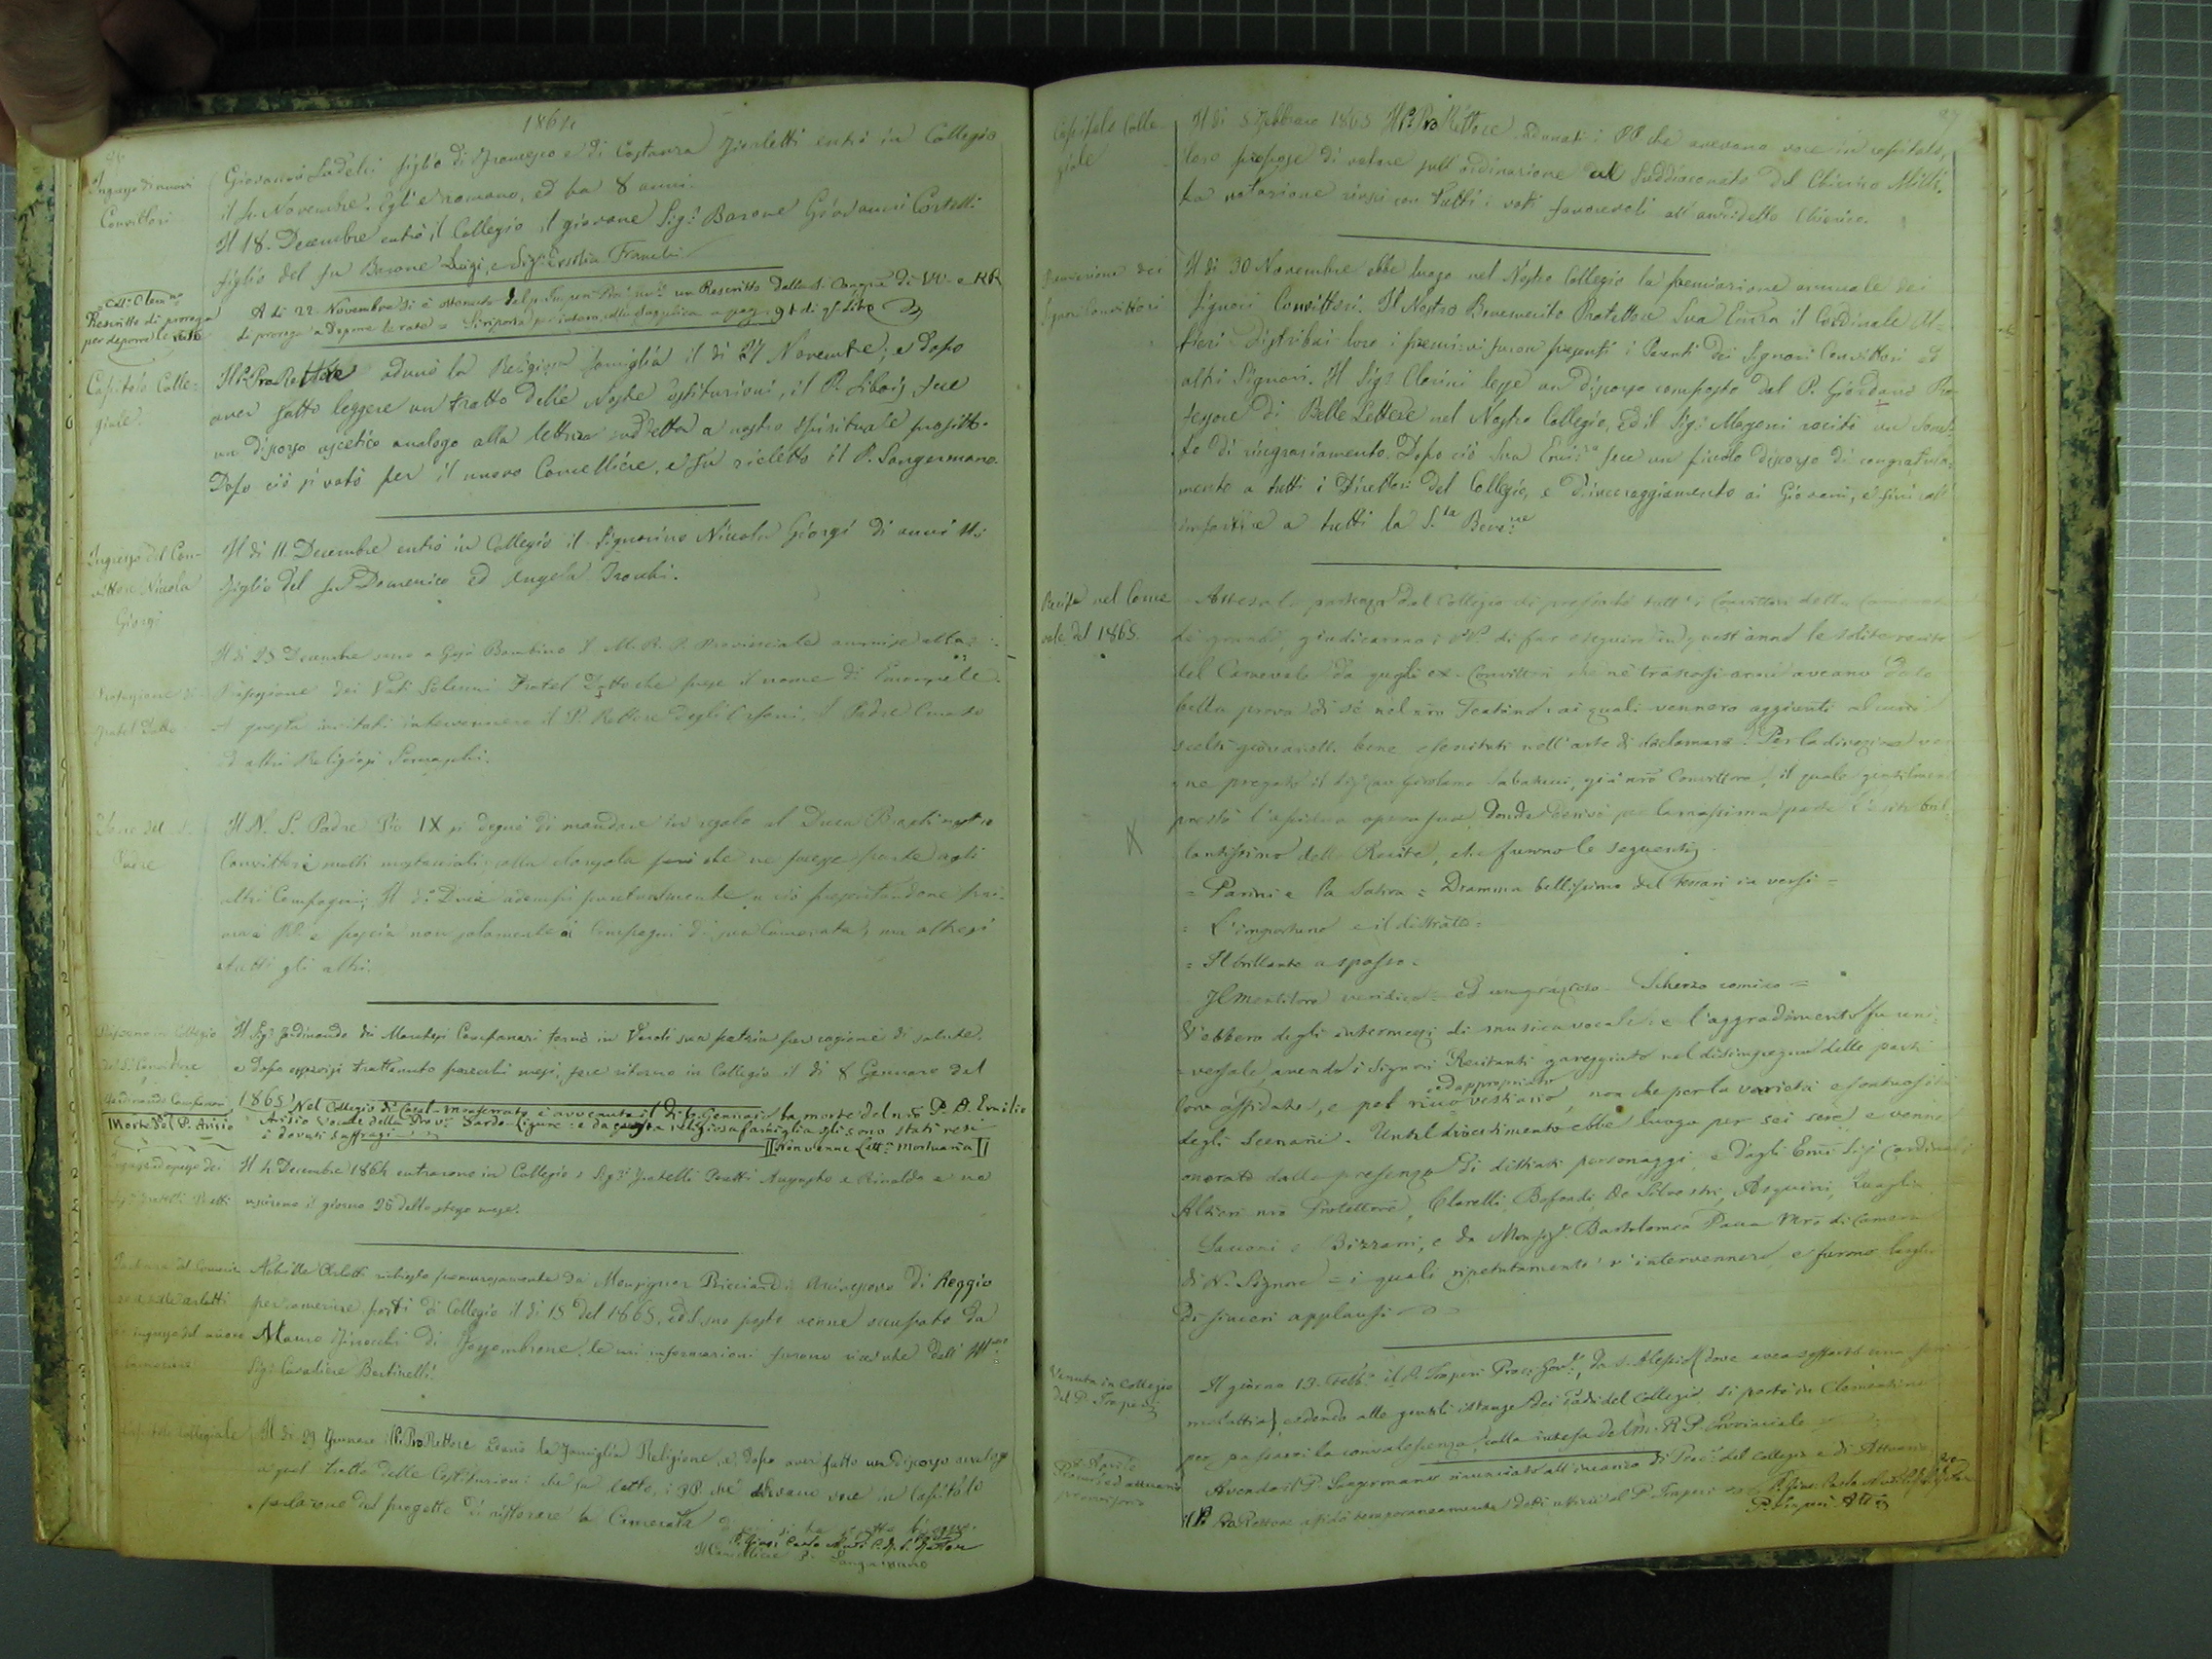 1864
Ingresso di nuovi
Convittori
Giovanni Ladelci figlio di Francesco e di Costanza Fioletti entrò in Collegio
il Novembre. Egli è romano, ed ha 8 anni.
Il 18. Decembre entrò il Collegio il giovane Sig.r Barone Giovanni Cortelli
figlio del fu Barone Luigi, e Sig.ra Ersilia Franchi
Rescritto di proroga
per deporre le rate
A dì 22 Novembre si è ottenuto un Rescritto dalla S. Congne di VV. e RR
di proroga a Deporre le rate a pag. 91 di qto Libro
Capitolo Colle-
giale.
Il P. ProRettore adunò la Religiosa famiglia il dì 27 Novembre, e dopo
aver fatto leggere un tratto delle Nostre Costituzioni, il P. Libois fece
un discorso ascetico analogo alla lettura suddetta a nostro spirituale profitto.
Dopo ciò si votò per il nuovo Cancelliere, e fu rieletto il P. Sangermano.
Ingresso del Con-
vittore Niccola
Giorgi
Il dì 11. Decembre entrò in Collegio il Signorino Niccola Giorgi di anni 11.
figlio del fu Domenico ed Angela Trocchi.
Professione di
Fratel Zatto
Il dì 25 Decembre sacro a Gesù Bambino il M. R. P. Provinciale ammise alla
Professione dei Voti Solenni Fratel Zatto che prese il nome di Emanuele.
A questa invitati intervennero il P. Rettore degli Orfani, il Padre Curato
ed altri Religiosi Somaschi.
Dono del S.
Padre
Il N. S. Padre Pio IX si degnò di mandare in regalo al Duca Braschi nostro
Convittore molti mostaccioli, colla clausola però che ne facesse parte agli
altri Compagni; Il dì Duca adempì puntualmente a ciò presentandone pri-
ma i PP. e poscia non solamente ai Compagni di sua Camerata, ma altresì
a tutti gli altri.
in Collegio
del S. Convittore
Ferdinando Campanari
Il Sig. Ferdinando dei Marchesi Campanari tornò in Veroli sua patria per cagione di salute.
e dopo essersi trattenuto parecchi mesi, fece ritorno in Collegio il dì 8 Gennaro del
1865.
Morte del P. Arisio
Nel Collegio di Casal-Monferrato è avvenuta il dì Gennaio la morte del nro P. D. Emilio
Arisio Vocale della Provª Sardo-Ligure: e da questa religiosa famiglia gli sono stati resi
i dovuti suffragi
[[Non venne Lettª Mortuaria]]
Ingresso ed egresso dei
Sigri fratelli Peretti
Il 4 Decembre 1864 entrarono in Collegio i Sigri fratelli Peretti Augusto e Rinaldo e ne
uscirono il giorno 26 dello stesso mese.
Partenza del Cameriere
Achille Arletti
ed ingresso del nuovo
cameriere
Achille Arletti richiesto premurosamente da Monsignor Ricciardi Arcivescovo di Reggio
per cameriere partì di Collegio il dì 15 del 1865, ed il suo posto venne occupato da
Mauro Finocchi di Fossombrone, le cui informazioni furono ricevute dall'Ill.mo
Sig. Cavaliere Bertinelli.
Capitolo Collegiale
Il dì 29 Gennaro il P. ProRettore adunò la famiglia Religiosa, e dopo aver fatto un discorso analogo
a quel tratto delle Costituzioni che fu letto, i PP. che avevano voce in Capitolo
parlarono del progetto di ristorare la Camerata
P. Gius. Carlo Rettore
Il Cancelliere P. Sangermano
87
Capitolo Colle-
giale
Il dì 5 Febbraro 1865 Il P. ProRettore adunati i PP. che avevano voce in capitolo,
loro propose di votare sull'ordinazione al Suddiaconato del Chierico Milli.
La votazione riuscì con tutti i voti favorevoli all'anzidetto Chierico.
Premiazione dei
Signori Convittori
Il dì 30 Novembre ebbe luogo nel Nostro Collegio la premiazione annuale dei
Signori Convittori. Il Nostro Benemerito Protettore Sua Emza il Cardinale Al-
tieri distribuì loro i premi: vi furon presenti i Parenti dei Signori Convittori ed
altri Signori. Il Sigr Clarini lesse un discorso composto dal P. Giordano Pro-
fessore di Belle Lettere nel Nostro Collegio, ed il Sigr Mazeni recitò un Sonet-
to di ringraziamento. Dopo ciò Sua Emza fece un piccolo discorso di congratula-
mento a tutti i Direttori del Collegio, e d'incoraggiamento ai Giovani, e finì coll'
impartire a tutti la S.ta Bene.ne
Recita nel Carne-
vale del 1865.
Attesa la partenza dal Collegio di presso che tutti i Convittori della Camerata
de' grandi, giudicarono i PP. di far eseguire in quest'anno le solite recite
del Carnevale da quegli ex-Convittori che ne' trascorsi anni aveano dato
bella prova di sè nel nro Teatino: ai quali vennero aggiunti alcuni
scelti giovanetti bene esercitati nell'arte di declamare. Per la direzione ven
ne pregato il Sigr Cav Girolamo Sabatucci, già nro Convittore, il quale gentilment
prestò l'assidua opera sua, donde derivò per la massima parte l'esito bril
lantissimo delle Recite, che furono le seguenti
= Parini e la Satira = Dramma bellissimo del Ferrari in versi =
= L'importuno e il distratto =
= Il brillante a spasso =
Il Mentitore veridico = ed un grazioso Scherzo comico =
V'ebbero degli intermezzi di musica vocale: e l'aggradimento fu uni-
versale, avendo i Signori Recitanti gareggiato nel disimpegno delle parti
loro affidate, e pel ricco ed appropriato vestiario, non che per la varietà e sontuosità
degli Scenari. Un tal divertimento ebbe luogo per sei sere, e venne
onorato dalla presenza di distinti personaggi e dagli Emi Sigi Cardinali
Altieri nro Protettore, Clarelli, Bofondi, De Silvestri, Asquini, Quaglia
Sacconi e Bizzarri, e da Monsigr Bartolomeo Pacca Mro di Camera
di N. Signore = i quali ripetutamente v'intervennero e furono larghi
di sinceri applausi
Venuta in Collegio
del P. Imperi
Il giorno 13. Febb.o il P. Imperi Proc. Gen.le, da S. Alessio (dove avea sofferto una
malattia) cedendo alle gentili istanze dei Padri del Collegio, si portò in Clementino
per passarvi la convalescenza, colla intesa del M. R. P. Provinciale
Procur. ed attuario
provvisorio
Avendo il P. Sangermano rinunciato all'incarico di Proc. del Collegio e di Attuario
il P. ProRettore affidò temporaneamente detti uffici al P. Imperi
P. Gius. Carlo
P. Imperi Att.